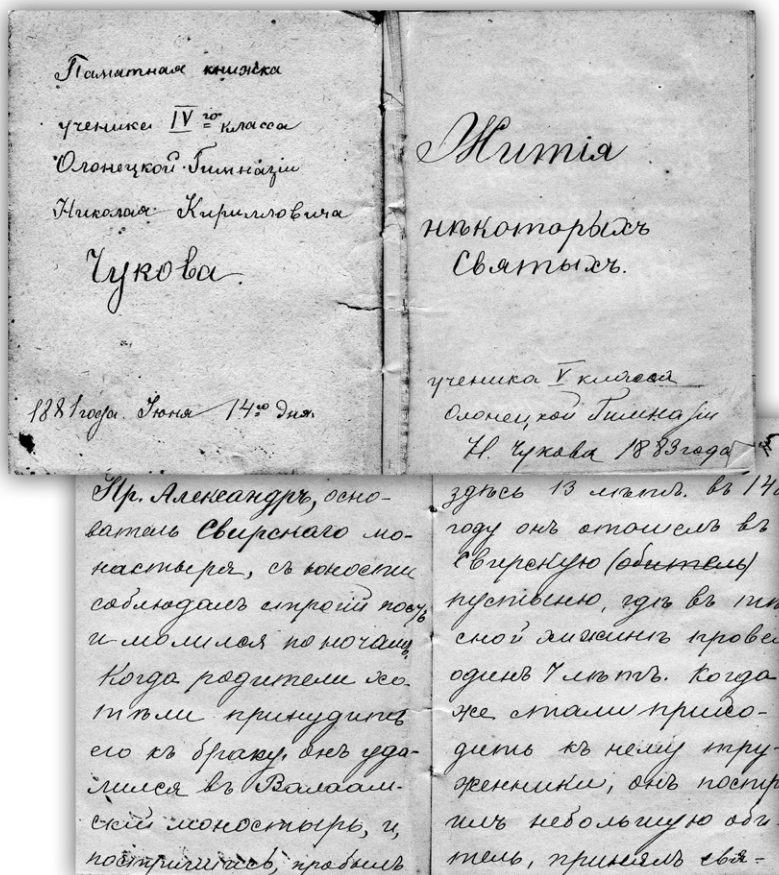 Памятная книжка
ученика IV го класса
Олонецкой Гимназіи
Николая Кирилловича
Чукова.
1881 года Іюня 14го дня.
Житія
нѣкоторыхъ
Святыхъ.
ученика V класса
Олонецкой Гимназіи
Н. Чукова 1883 года
Пр. Александръ, осно-
ватель Свирскаго мо-
настыря, съ юности
соблюдалъ строгій постъ
и молился по ночамъ.
Когда родители хо-
тѣли принудить
его къ браку, онъ уда-
лился въ Валаам-
скій моностырь, и,
постригшись, пробылъ
здѣсь 13 лѣтъ. въ 14
году онъ отошелъ въ
Свирскую (обитель)
пустыню, гдѣ въ тѣ
сной хижинѣ провел
одинъ 7 лѣтъ. Когда
же стали прихо-
дить къ нему тру-
женники, онъ постр
илъ небольшую оби-
тель, принялъ свя-